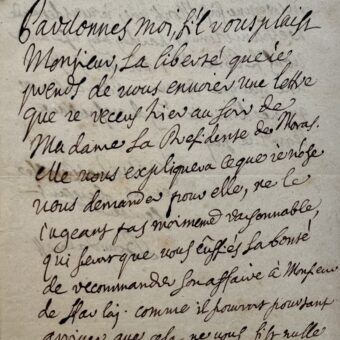 Pardonnes moi, s'il vous plaist
Monsieur, la liberté que ie
prends de vous envoier une lettre
que ie receus hier au soir de
Madame la Presidente de Moras.
elle vous expliquera ce que ie n'ose
vous demander pour elle, ne le
iugeant pas moimeme raisonnable,
qui seroit que vous eussiés la bonté
de recommander son affaire à Monsieur
de Harlai. comme il pourroit pourtant
arriver que cela ne vous fist nulle